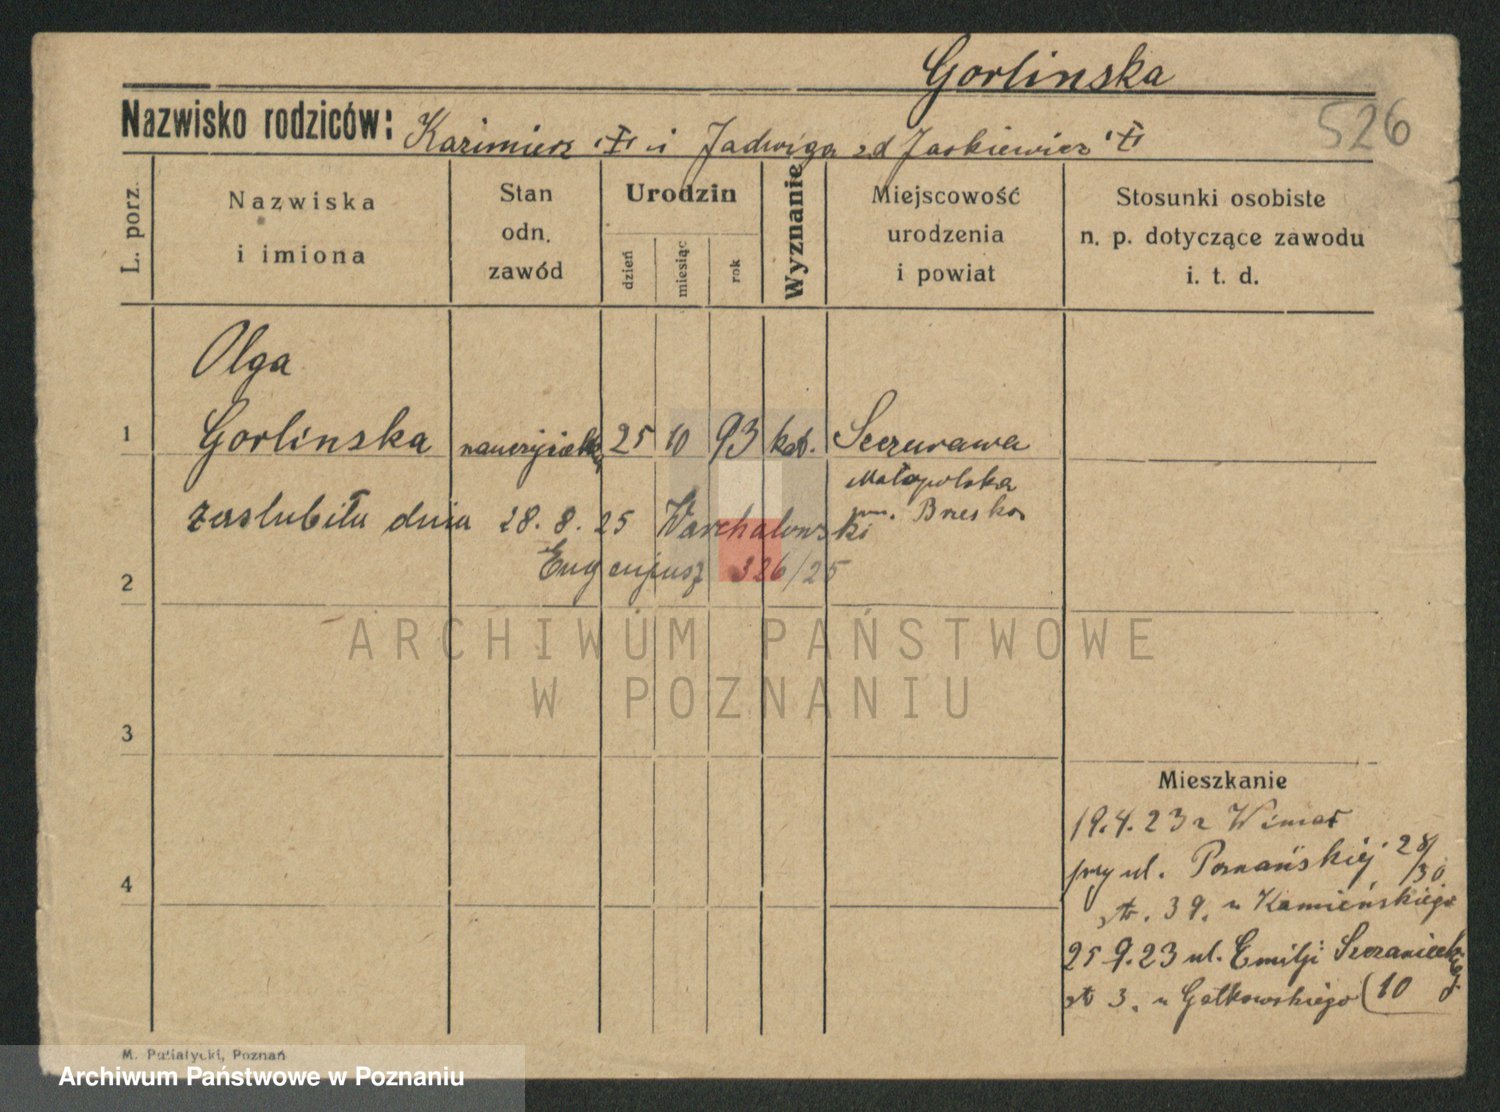 Gorlinska
526
Nazwisko rodziców: Kazimierz i Jadwiga zd Jaskiewicz
L. porz.
Nazwiska i imiona
Stan odn. zawód
Urodzin
dzień
miesiąc
rok
Wyznanie
Miejscowość urodzenia i powiat
Stosunki osobiste n. p. dotyczące zawodu i. t. d.
Olga
1 Gorlinska nauczycielka 25 10 93 kat. Szczurawa
Małopolska
zaslubiła dnia 28. 8. 25 Warchalowski pow. Brzesko
2 Eugenjusz 326/25
ARCHIWUM PAŃSTWOWE
W POZNANIU
3
Mieszkanie
19.4.23 z
4 przy ul. Poznańskiej 28/30
39. u Kamieńskiego
25 9.23 ul. Emilji Szczanieckiej
3. u Gatkowskiego (10
M. Putiatycki, Poznań
Archiwum Państwowe w Poznaniu